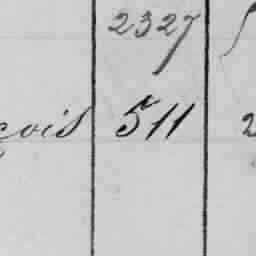 2327
çois 511 2